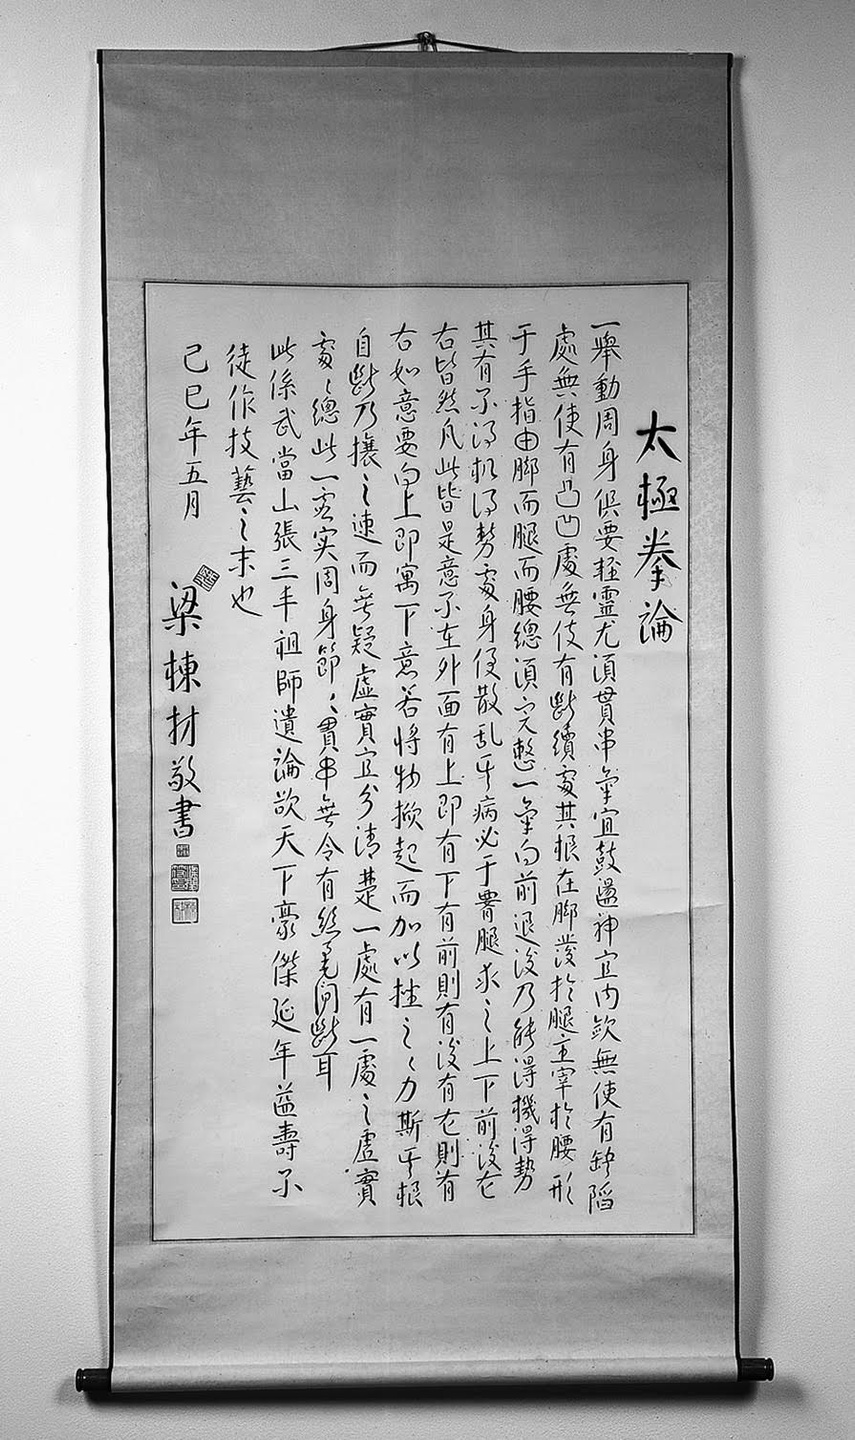 太極拳論
一舉動周身俱要輕靈尤須貫串氣宜鼓盪神宜内歛無使有缺陷
處無使有凸凹處無使有斷續處其根在脚發於腿主宰於腰形
于手指由脚而腿而腰總須完整一氣向前退後乃能得機得勢
其有不得机得势處身便散乱其病必于腰腿求之上下前後左
右皆然凡此皆是意不在外面有上即有下有前則有後有左則有
右如意要向上即寓下意若将物掀起而加以挫之之力斯其根
自斷乃攘之速而無疑虛實宜分清楚一處有一處之虛實
處處總此一虚实周身節節貫串無令有絲毫间斷耳
此係武當山張三丰祖師遺論欲天下豪傑延年益壽不
徒作技藝之末也
己巳年五月
梁棟材敬書